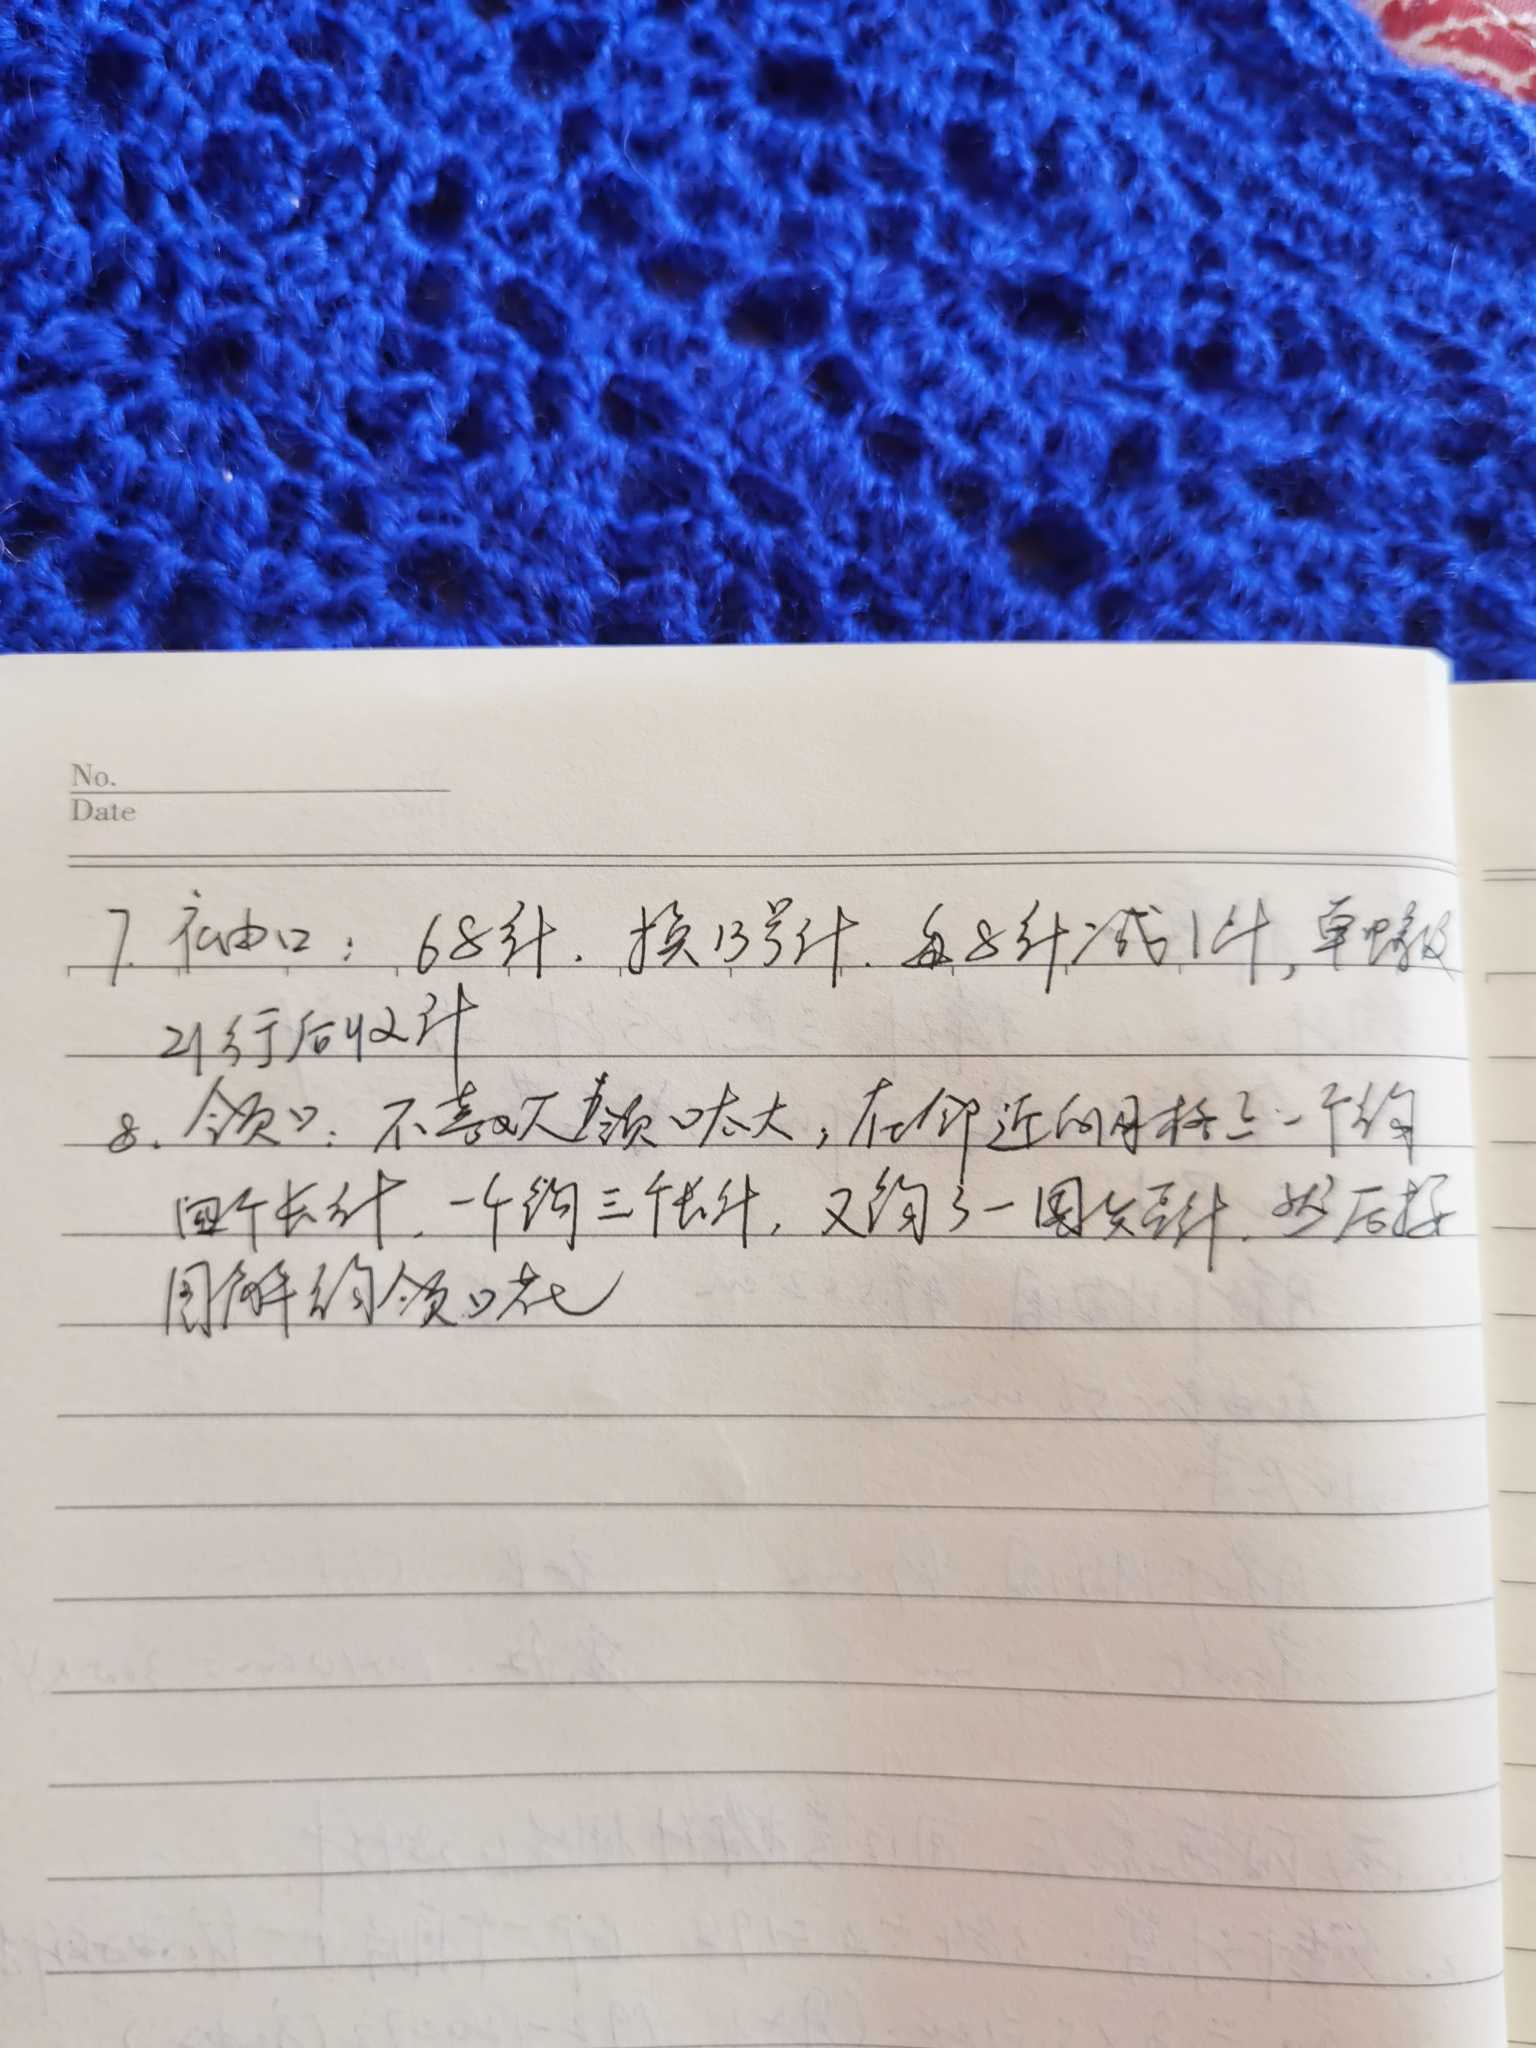 No.
Date
7. 袖口：68针. 换13号针. 每8针减1针, 单螺纹
21行后收针
8. 领口：不喜欢领口太大, 在邻近的月格上一个钩
四个长针. 一个钩三个长针, 又钩了一圈短针. 然后按
图解钩领口花